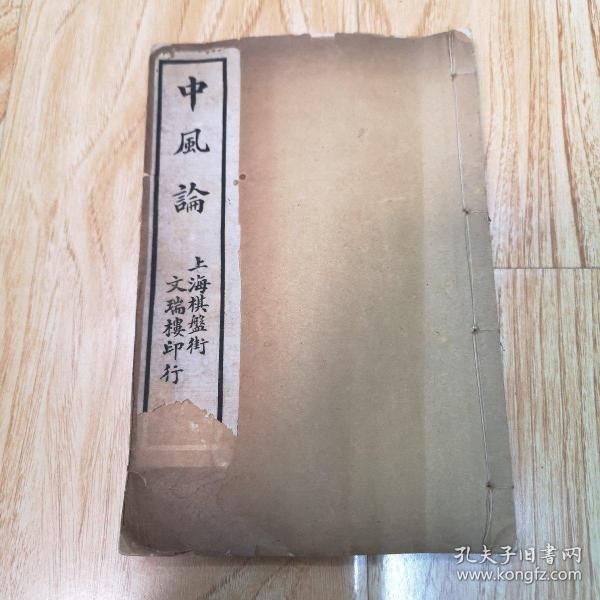 中風論
上海棋盤街
文瑞樓印行
孔夫子旧書网
www.kongfz.com